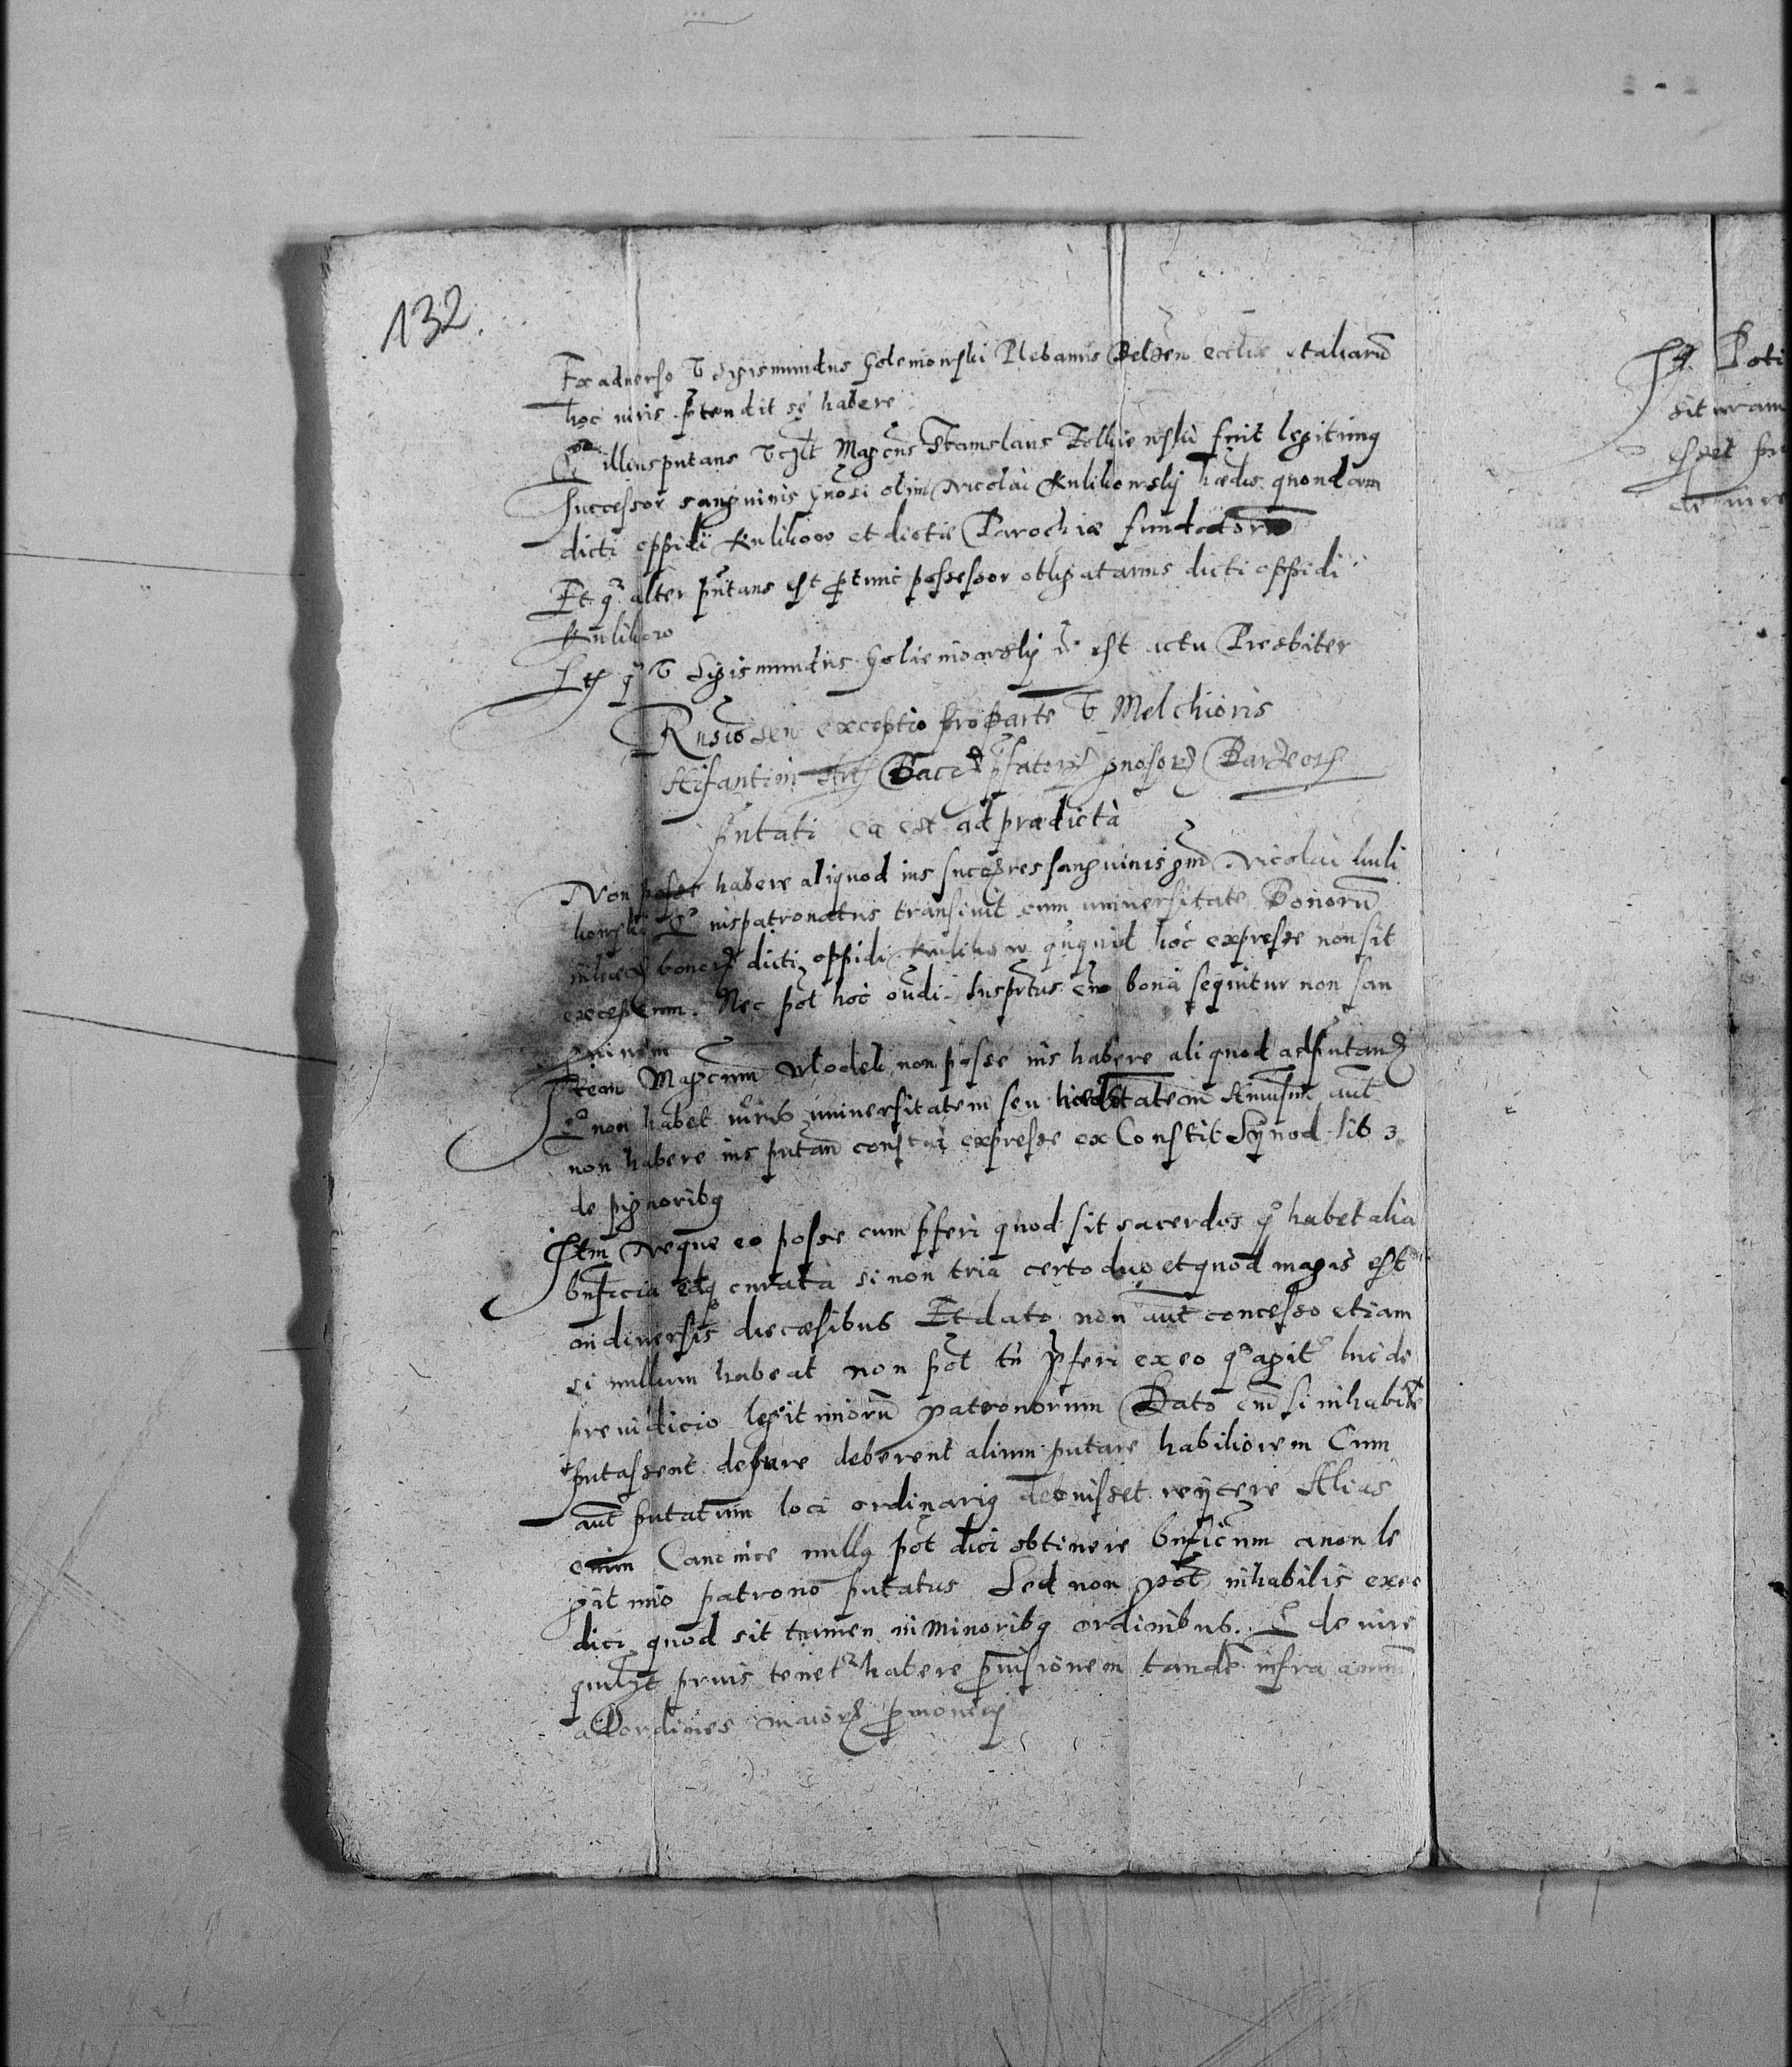 132.
Ex aduerso V Sigismundus Golemowski Plebanus Belzen ecclie et aliarū
hoc iuris ptendit sę habere
Qr illius putans vcꝫlt Magcus Stanislaus Zolkiewski fuit legitimꝯ
Successor sanguinis gnosi olim Nicolai Kulikowskÿ hædis quondam
dicti oppidi Kulikow et dictæ Parochiæ fundatoris
Et q alter putans est ptunc possessor obligatarius dicti oppidi
Kulikow
Itē q V Sigismundus Goliemowskÿ est actu Presbiter
seu exceptio pro parte V Melchioris
Bacc
pntati ea est ad prædictà
Non posse habere aliquod ius succēres sanguinis gm̄ Nicolai Kuli
kowski Qr iuspatronatus transiuit cum uniuersitate Bonorū
dicti oppidi Kulikow hoc expresse non sit
exceptum. Nec pōt hoc Iusprtus em bona sequitur non san
guinem
Item Magcum Wlodek non posse ius habere aliquod adputandꝫ
Qr non habet iuris uniuersitatem seu hæditatem aut
non habere ius putan constat expresse ex Constit Synod lib 3
de pignoribꝯ
Itm̄ Neque eo posse eum pferi quod sit sacerdos qr habet alia
bnficia etq curata si non tria certo duo et quod magis est
in diuersis diœcæsibus Et dato non aut concesso etiam
si nullum habeat non pōt tn̄ pferi ex eo q agitr huc de
preiudicio legitimorū patronorum Dato em̄ si inhabilē
putassent deiure deberent alium putare habiliorem Cum
aut putatum loci ordinariꝯ debuisset reÿcere Alias
enim Canonice nullꝯ pōt dici obtinere bnficium a non le
gitimo patrono putatus Sed non pōt inhabilis ex eo
dici quod sit tamen in minoribꝯ ordinibus. Qr de iure
quilꝫt prius tenetr habere puisionem tandē infra annū
ad ordines maiores pmoueri
Poti
sit
esset